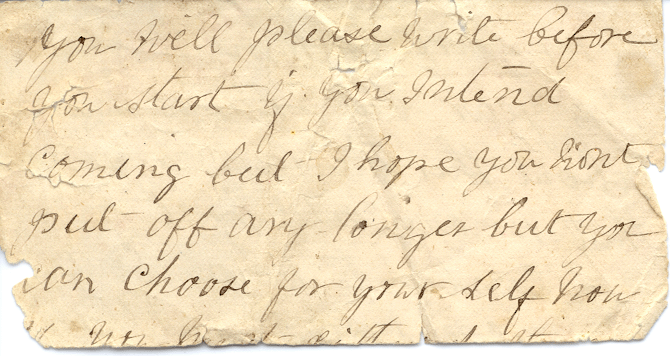 You will please write before
you start if you Intend
coming but I hope you dont
put off any longer but you
can choose for your self now
you